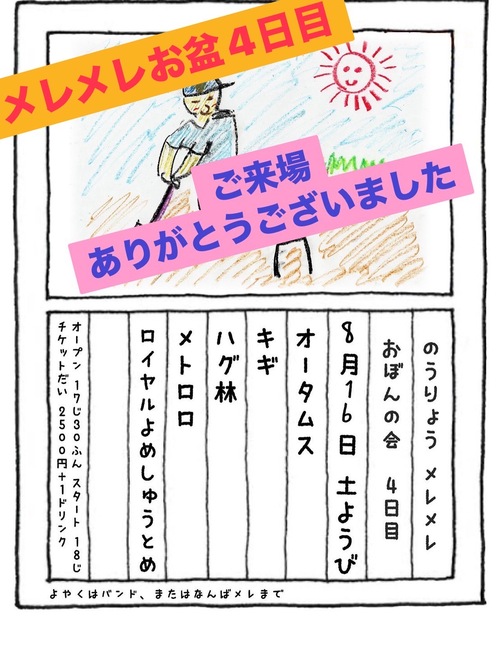 メレメレお盆4日目
ご来場
ありがとうございました
のうりょう メレメレ
おぼんの会 4日目
8月16日 土ようび
オータムス
キギ
ハグ林
メトロロ
ロイヤルよめしゅうとめ
オープン 17じ30ふん スタート 18じ
チケットだい 2500円+1ドリンク
よやくはバンド、またはなんばメレまで